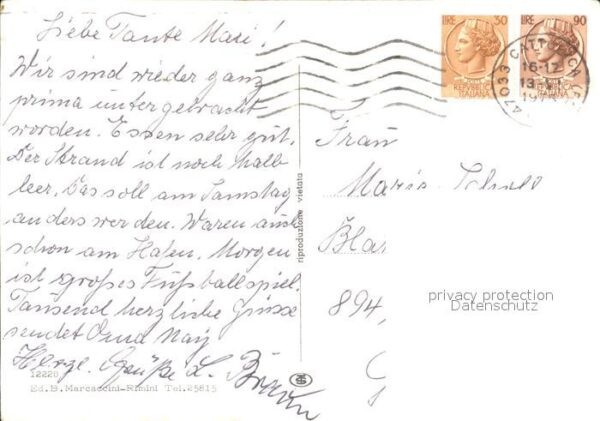 Liebe Tante Mari!
Wir sind wieder ganz
prima untergebracht
worden. Essen sehr gut.
Der Strand ist noch halb
leer. Das soll am Samstag
anders werden. Waren auch
schon am Hafen. Morgen
ist großes Fußballspiel.
Tausend herzliche Grüsse
sendet Oma
Herzl. Grüße
12220
Ed. B. Marcaccini-Rimini Tel. 25815
riproduzione vietata
LIRE 30
REPVBBLICA
ITALIANA
LIRE 90
ITALIANA
47033 CATTOLICA
16-17
13
Frau
Maria
Bla
894,
privacy protection
Datenschutz